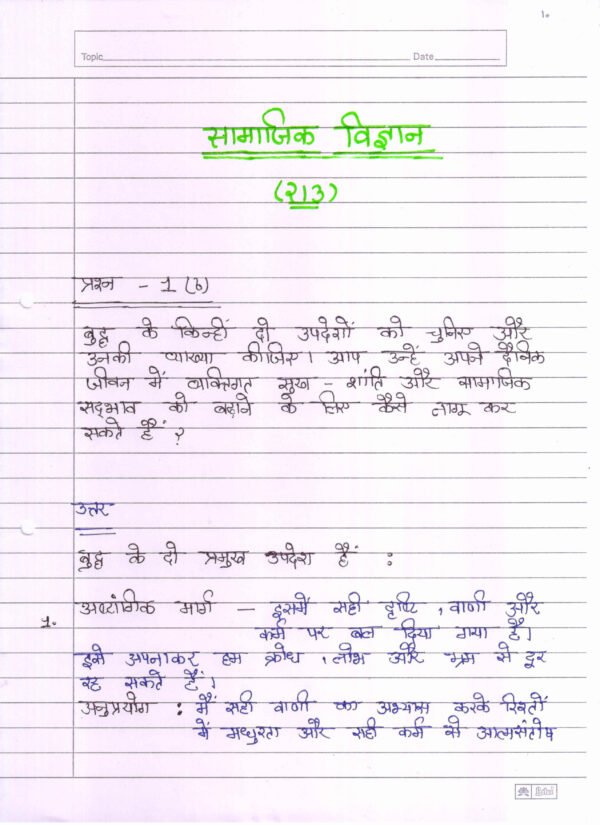 १०
Topic Date
सामाजिक विज्ञान
(२१३)
प्रश्न - 1 (b)
बुद्ध के किन्हीं दो उपदेशों को चुनिए और
उनकी व्याख्या कीजिए। आप उन्हें अपने दैनिक
जीवन में व्यक्तिगत सुख - शांति और सामाजिक
सद्भाव को बढ़ाने के लिए कैसे लागू कर
सकते हैं ?
उत्तर
बुद्ध के दो प्रमुख उपदेश हैं :
1. अष्टांगिक मार्ग — इसमें सही दृष्टि , वाणी और
कर्म पर बल दिया गया है।
इसे अपनाकर हम क्रोध , लोभ और भ्रम से दूर
रह सकते हैं।
अनुप्रयोग : मैं सही वाणी का अभ्यास करके रिश्तों
में मधुरता और सही कर्म से आत्मसंतोष